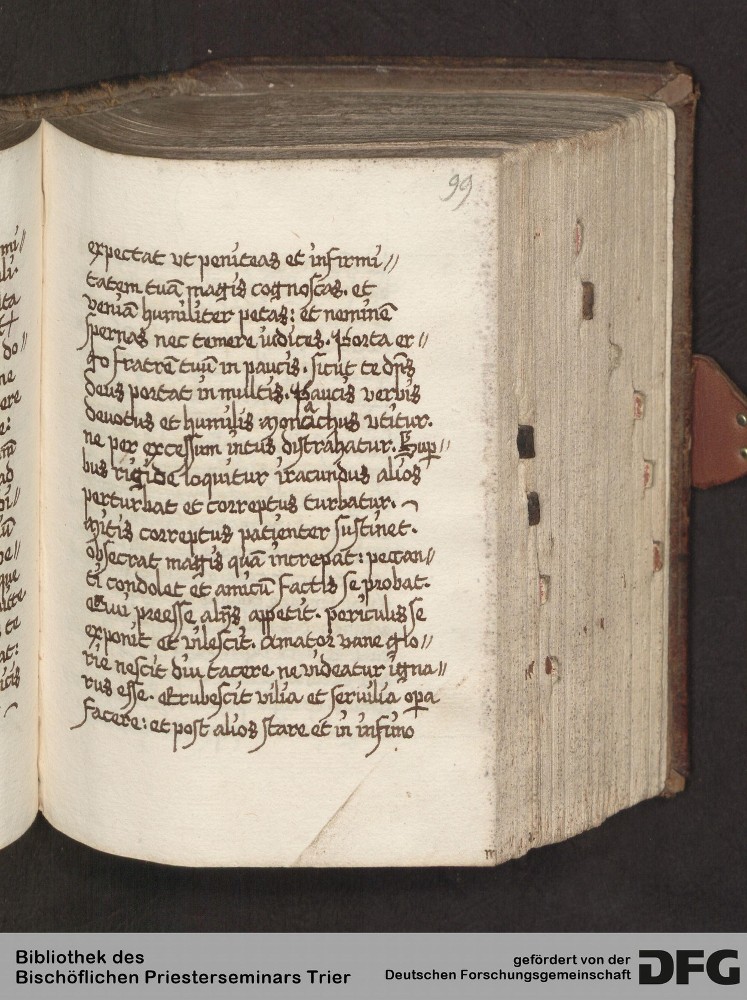 99
expectat vt peniteas et infirmi//
tatem tuā magis cognoscas. et
veniā humiliter petas: et neminē
spernas nec temere iudices. Porta er//
go fratrē tuū in paucis. sicut te dn̄s
deus portat in multis. Paucis verbis
deuotus et humilis monachus vtitur.
ne per excessum intus distrahatur. Sup//
bus rigide loquitur iracundus alios
perturbat et correptus turbatur.
Mitis correptus patienter sustinet.
obsecrat magis quā increpat: peccan//
ti condolet et amicū factis se probat.
Qui preesse alijs appetit. periculis se
exponit et vilescit. Amator vane glo//
rie nescit diu tacere ne videatur igna//
rus esse. Erubescit vilia et seruilia opa
facere: et post alios stare et in infimo
Bibliothek des
Bischöflichen Priesterseminars Trier
gefördert von der
Deutschen Forschungsgemeinschaft
DFG